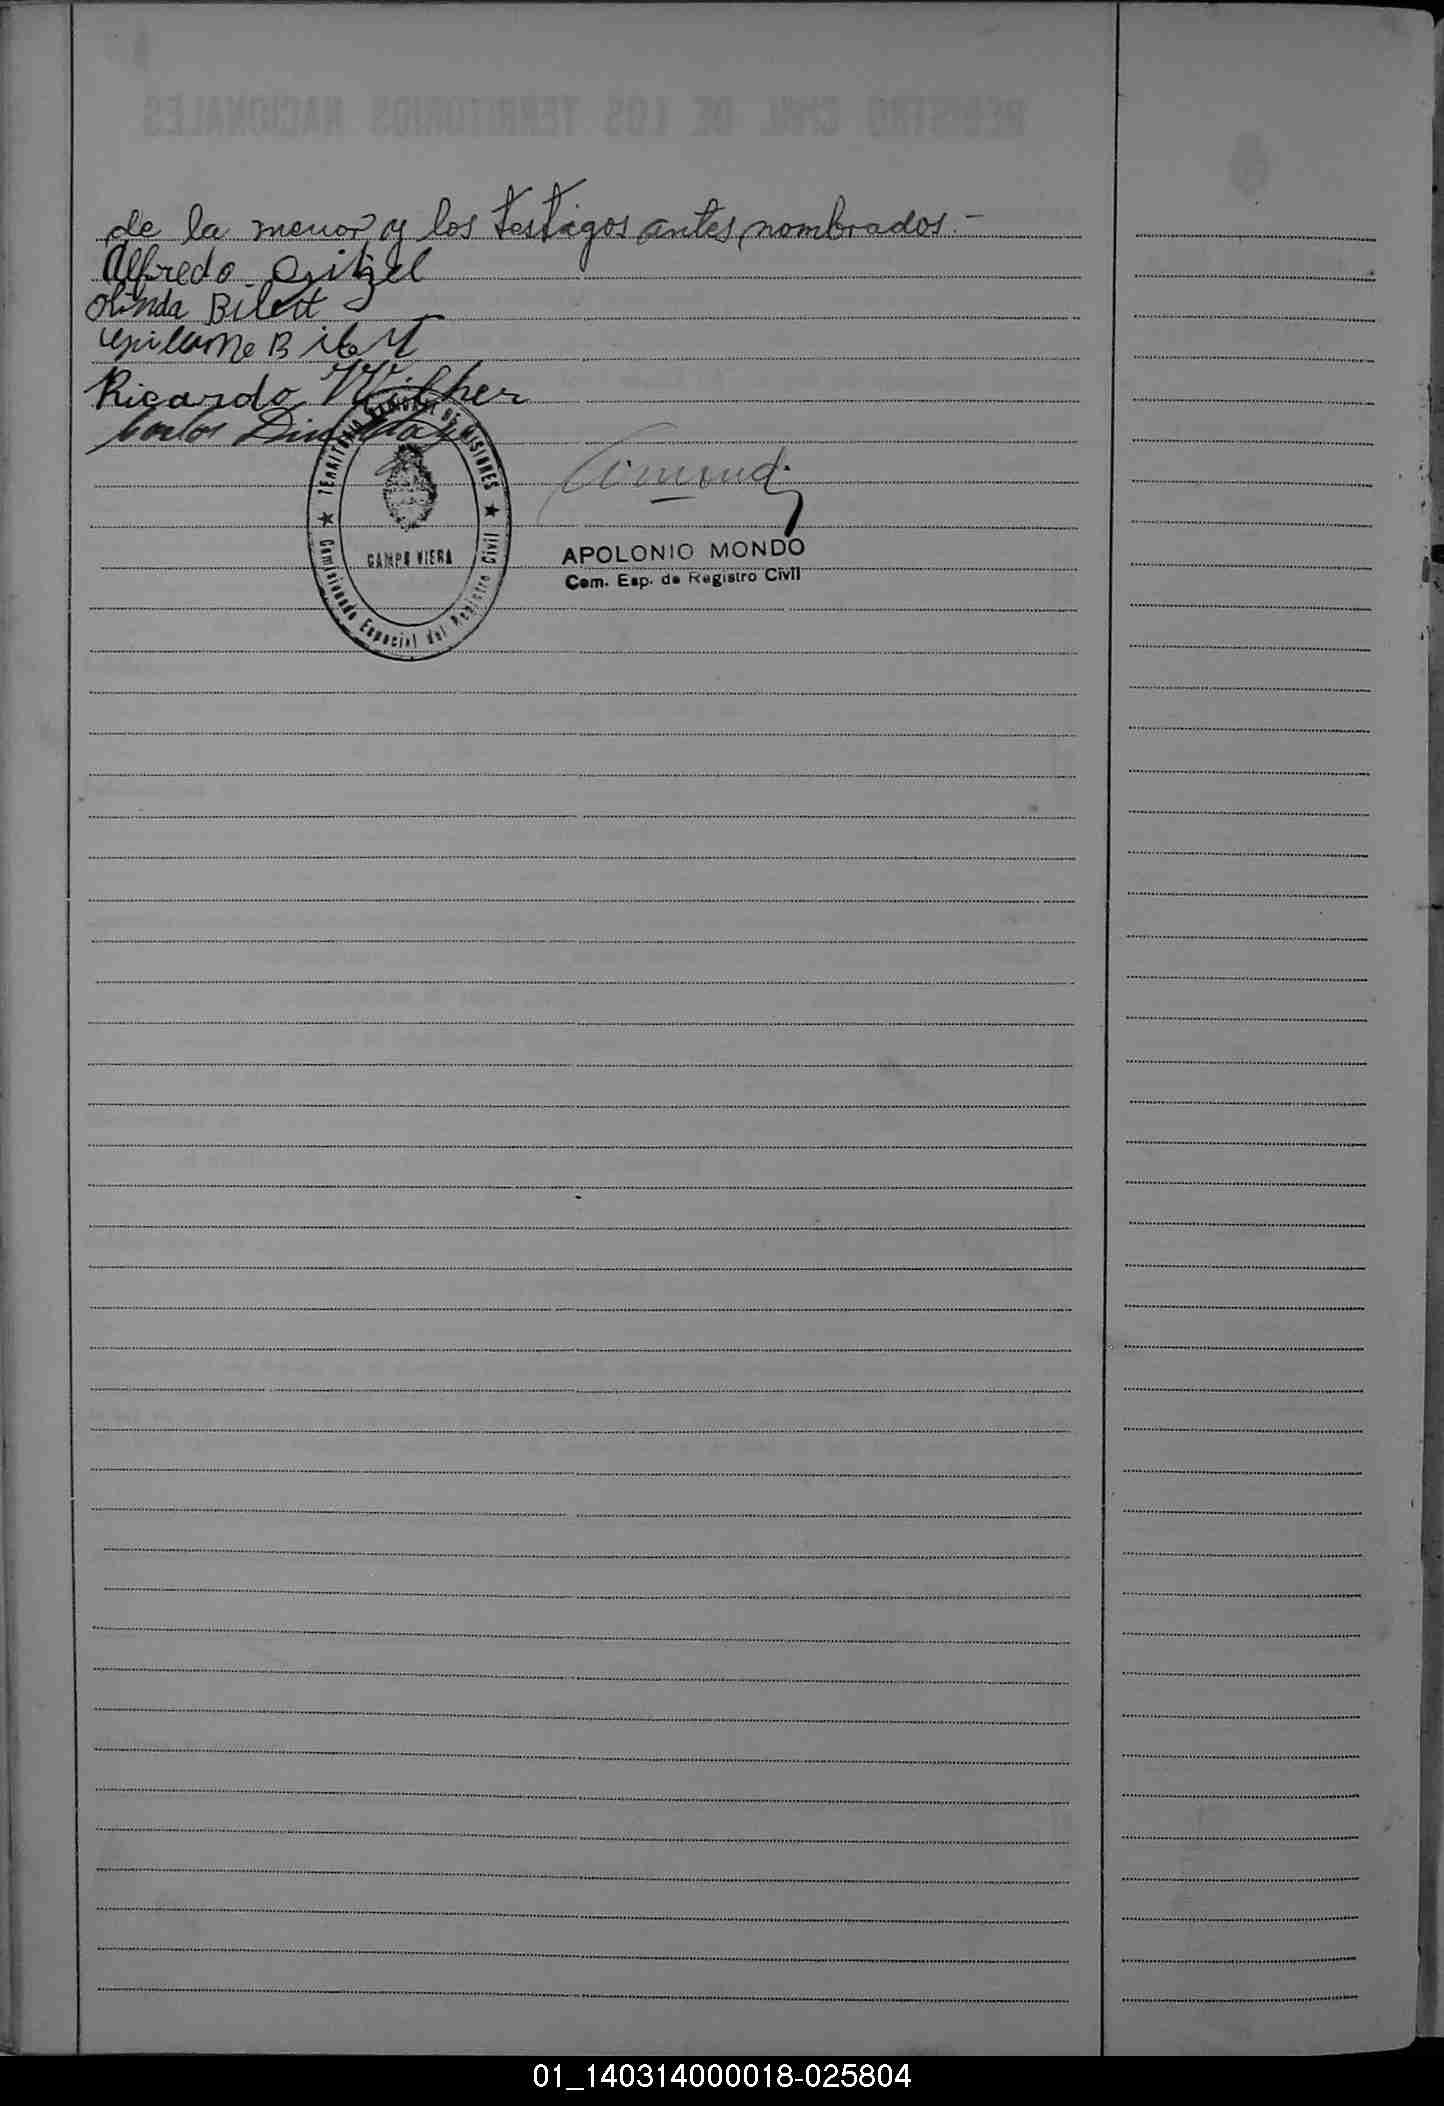 REGISTRO CIVIL DE LOS TERRITORIOS NACIONALES
de la menor y los testigos antes nombrados.-
Alfredo
Olinda
Ricardo
Carlos
TERRITORIO NACIONAL DE MISIONES
CAMPO VIERA
Comisionado Especial del Registro Civil
APOLONIO MONDO
Com. Esp. de Registro Civil
01_140314000018-025804